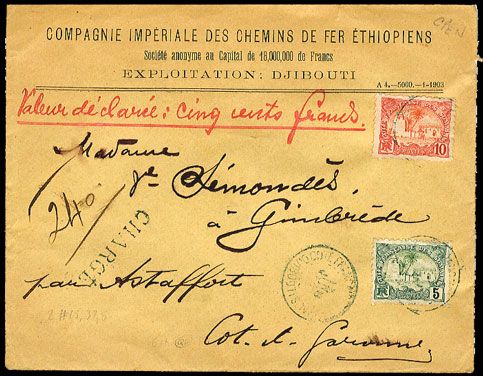 CAEN
COMPAGNIE IMPÉRIALE DES CHEMINS DE FER ÉTHIOPIENS
Société anonyme au Capital de 18,000,000 de Francs
EXPLOITATION: DJIBOUTI
A 4.—5000.—1-1903
Valeur déclarée: cinq cents francs.
10
Madame
Vve Sémondès
à Gimbrède
240
CHARGÉ
par Astaffort
5
Lot. et. Garonne